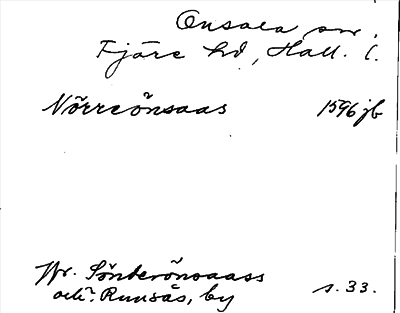 Onsala sn.
Fjäre hd, Hall. l.
Nörreönsaas 1596 jb
Jfr. Sönderönsaass
och Runsås, by s. 33.